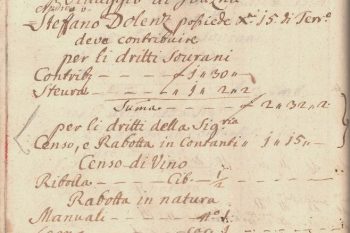 Steffano Dolenz possiede x 15 di Terr.o
deve contribuire
per li dritti Sourani
Contrib.z — — f 1 " 30 " —
Steura — — — f 1 " 2 " 2
Suma — — f 2 " 32 " 2
per li dritti della Sig.ria
Censo, e Rabotta in Contanti f 1 " 15 " —
Censo di Vino
Ribolla — — — Cib. — ½
Rabotta in natura
Manuali — — — — n.o 1.